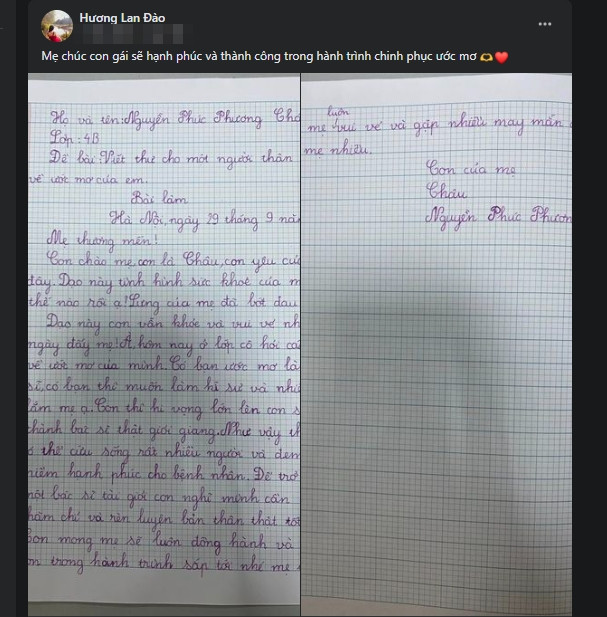 Hương Lan Đào
Mẹ chúc con gái sẽ hạnh phúc và thành công trong hành trình chinh phục ước mơ 🫶❤️
Họ và tên: Nguyễn Phúc Phương Châ
Lớp: 4B
Đề bài: Viết thư cho một người thân
về ước mơ của em.
Bài làm
Hà Nội, ngày 29 tháng 9 năm
Mẹ thương mến!
Con chào mẹ, con là Châu, con yêu của
đây. Dạo này tình hình sức khoẻ của m
thế nào rồi ạ! Lưng của mẹ đã bớt đau
Dạo này con vẫn khỏe và vui vẻ nh
ngày đấy mẹ! À, hôm nay ở lớp cô hỏi cá
về ước mơ của mình. Có bạn ước mơ là
sĩ, có bạn thì muốn làm kĩ sư và nhi
lắm mẹ ạ. Con thì hi vọng lớn lên con s
thành bác sĩ thật giỏi giang. Như vậy th
ó thể cứu sống rất nhiều người và đem
niềm hạnh phúc cho bệnh nhân. Để trở
một bác sĩ tài giỏi con nghĩ mình cần
hăm chỉ và rèn luyện bản thân thật tố
Con mong mẹ sẽ luôn đồng hành và
on trong hành trình sắp tới nhé mẹ
luôn
mẹ vui vẻ và gặp nhiều may mắn
mẹ nhiều.
Con của mẹ
Châu
Nguyễn Phúc Phươn